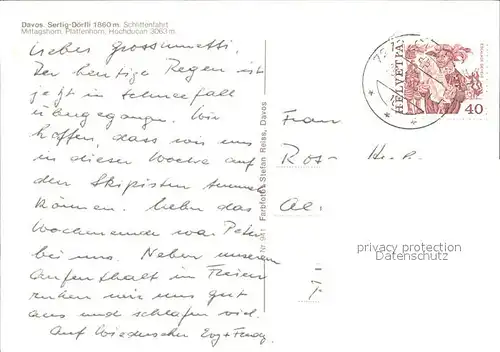 Davos. Sertig-Dörfli 1860 m. Schlittenfahrt
Mittagshorn. Plattenhorn. Hochducan 3063 m.
Liebes Grossmuetti,
Der heutige Regen ist
jetzt in Schneefall
übergegangen. Wir
hoffen, dass wir uns
in dieser Woche auf
den Skipisten tummeln
können. Ueber das
Wochenende war Peter
bei uns. Neben unserem
Aufenthalt im Freien
ruhen wir uns gut
aus und schlafen viel.
Auf Wiedersehn
Nr 941 Farbfotos Stefan Reiss, Davos
Frau
HELVETIA
40
privacy protection
Datenschutz